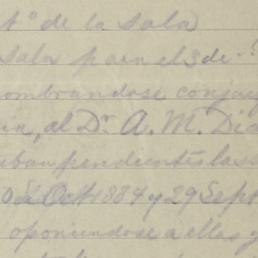 to de la Sala
sala para el 3 de
nombrandose conju
al Dr. A. M. Dia
ban pendientes las s
0 de Oct 1884 y 29 Sep
oponiendose a ellas y